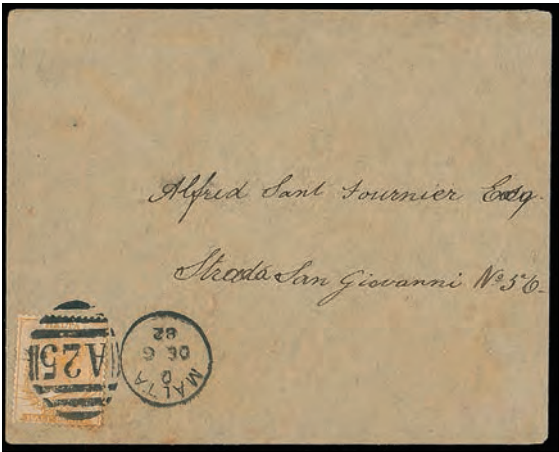 Alfred Sant Fournier Esq.
Strada San Giovanni No 56.
A25
MALTA
D
DE 6
82